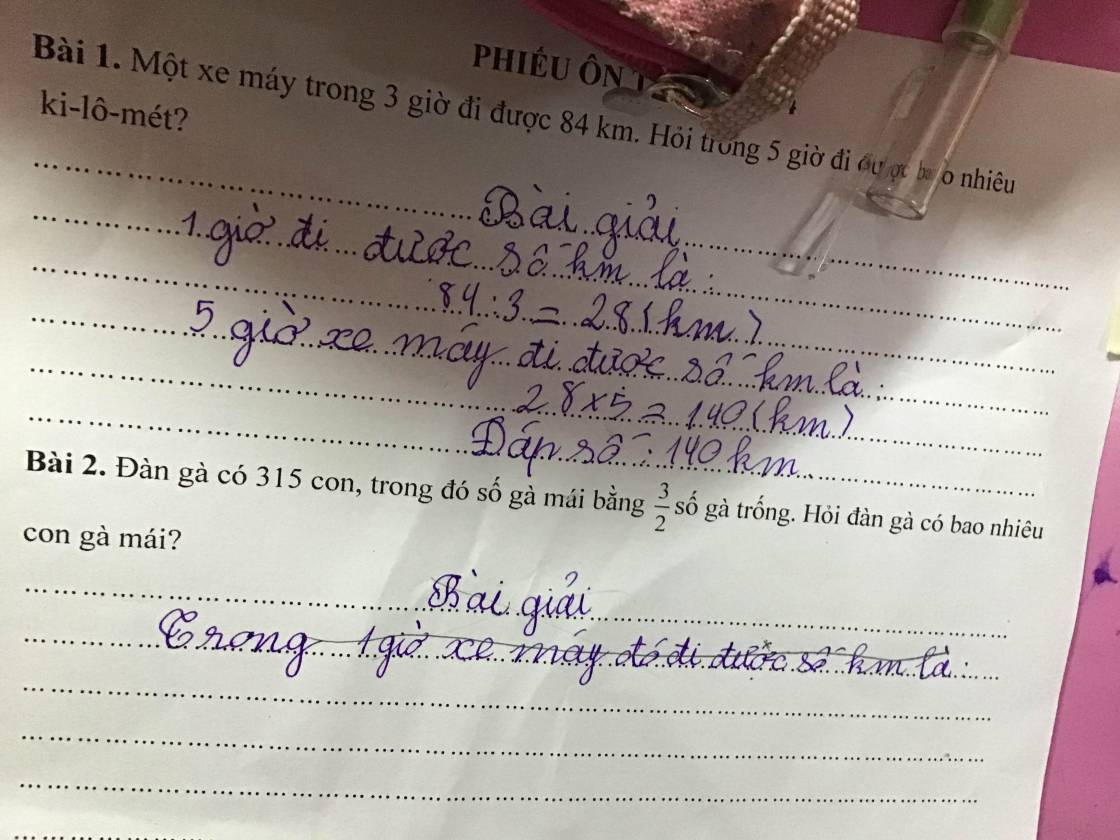 PHIẾU ÔN
Bài 1. Một xe máy trong 3 giờ đi được 84 km. Hỏi trong 5 giờ đi được bao nhiêu
ki-lô-mét?
Bài giải
1 giờ đi được số km là:
84 : 3 = 28 (km)
5 giờ xe máy đi được số km là:
28 x 5 = 140 (km)
Đáp số: 140 km
Bài 2. Đàn gà có 315 con, trong đó số gà mái bằng 3/2 số gà trống. Hỏi đàn gà có bao nhiêu
con gà mái?
Bài giải
Trong 1 giờ xe máy đó đi được số km là: